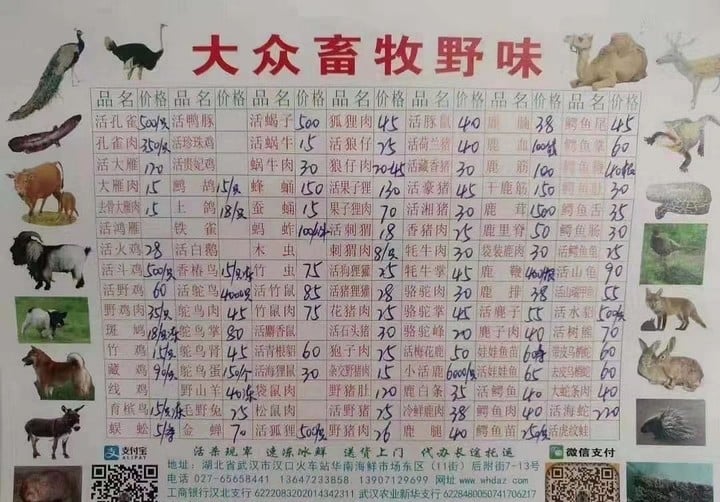 大众畜牧野味
品名 价格 品名 价格 品名 价格 品名 价格 品名 价格 品名 价格 品名 价格
活孔雀 500/只 活鸭豚 活蝎子 500 狐狸肉 45 活豚鼠 40 鹿脑 38 鳄鱼尾 45
孔雀肉 350/只 活珍珠鸡 活蜗牛 15 活狼仔 25 活荷兰猪 40 鹿血 鳄鱼掌 60
活大雁 120 活贵妃鸡 蜗牛肉 30 狼仔肉 20-45 活藏香猪 30 鹿筋 100 鳄鱼鞭
大雁肉 15 鹧鸪 15/只 蜂蛹 150 活果子狸 130 活豪猪 45 干鹿筋 150 30
去骨大雁肉 15 土鸽 18/只 蚕蛹 15 果子狸肉 70 活湘猪 30 鹿茸 1500 鳄鱼舌 35
活鸿雁 铁雀 蚂蚱 活刺猬 18 香猪肉 25 鹿里脊 50 鳄鱼肠 30
活火鸡 28 活白鹅 木虫 刺猬肉 8/只 牦牛肉 30 袋装鹿肉 30 活鳄鱼 25
活斗鸡 500/只 香椿鸟 竹虫 75 活狗狸獾 25 牦牛掌 45 鹿鞭 活山龟 90
活野鸡 60 活鸵鸟 4000/只 活竹鼠 85 活猪狸獾 28 骆驼肉 30 鹿排 38 55
野鸡肉 35/只 鸵鸟肉 45 竹鼠肉 75 花猪肉 25 骆驼掌 45 活鹿子 55 活水貂
斑鸠 鸵鸟掌 80 活麝香鼠 活石头猪 30 骆驼峰 20 鹿子肉 40 活树熊 70
竹鸡 15/只 鸵鸟肾 45 活青根貂 60 狍子肉 25 活梅花鹿 50 娃娃鱼苗 60
藏鸡 90/只 鸵鸟蛋 150/个 活海狸鼠 30 杂交野猪肉 15 6000/只 活娃娃鱼 65 60
线鸡 野山羊 袋鼠肉 野猪肚 120 鹿白条 35 活鳄鱼 40 大蛇条肉 40
育槟鸡 毛野兔 25 松鼠肉 活野猪 25 冷鲜鹿肉 38 鳄鱼肉 40 活海蛇 220
蜈蚣 金蝉 70 活狐狸 500/只 野猪肉 26 鹿腿 40 鳄鱼苗 活虎纹蛙
支付宝 ALIPAY 活杀现宰 速冻冰鲜 送货上门 代办长途托运 微信支付
地址:湖北省武汉市汉口火车站华南海鲜市场东区(11街)后附街7-13号
电话:027-65658441 13647233858 13907129699 网址:www.whdaz.com
工商银行汉北支行 6222083202014342311 武汉农业新华支行 6228480050741706217